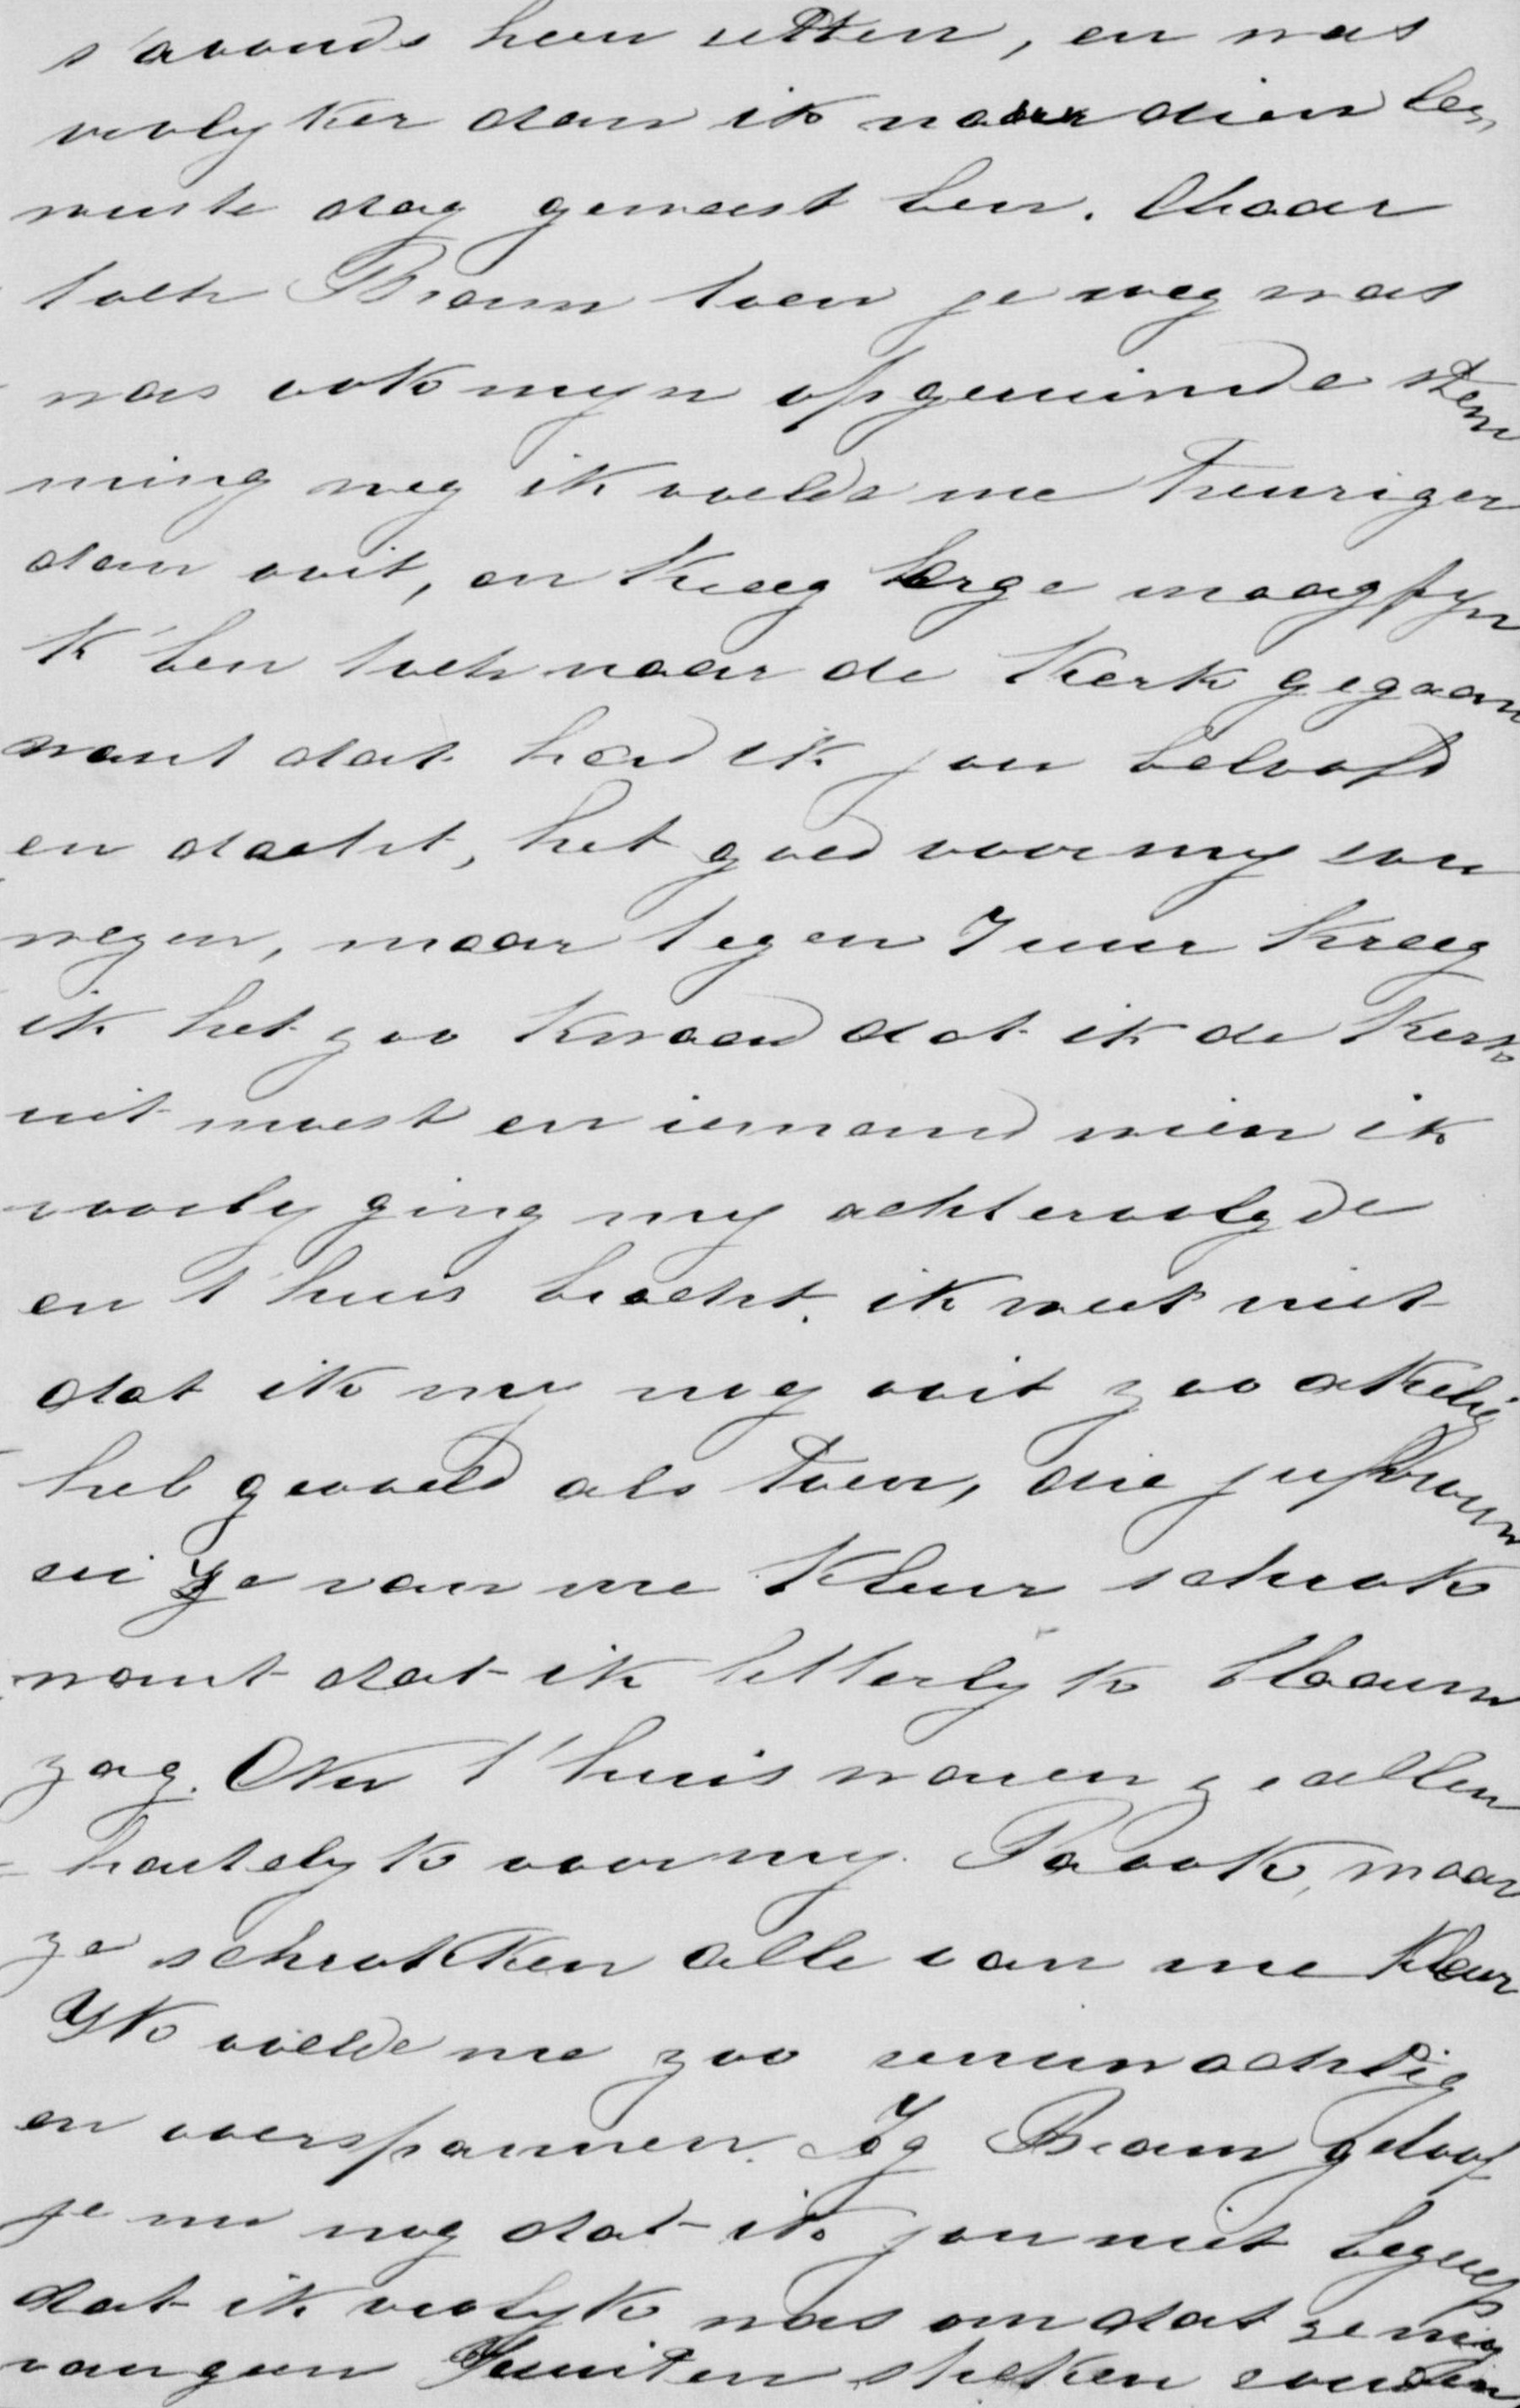 s'avonds heen zitten, en was
vrolyker dan ik naar dien be,
wuste dag geweest ben. Maar
toch Bram toen je weg was
was ook myn opgeruimde stem
ming weg ik voelde me treuriger
dan ooit, en kreeg erge maagpyn
k' ben toch naar de kerk gegaan
want dat had ik jou beloofd
en dacht, het goed voor my zou
wezen, maar tegen 7 uur kreeg
ik het zoo kwaad dat ik de kerk
uit moest en iemand wien ik
voorby ging my achtervolgde
en t'huis bracht. ik weet niet
dat ik my nog ooit zoo akelig
heb gevoeld als toen, die juffrouw
zei ze van me kleur schrok
want dat ik letterlyk blaauw
zag. Nu t'huis waren ze allen
hartelyk voor my. Pa ook, maar
ze schrokken alle van me kleur
Ik voelde me zoo zenuwachtig
en overspannen. Zeg Bram geloof
je nu nog dat ik jou niet begreep
dat ik vrolyk was omdat ze my
van geen steken zouden